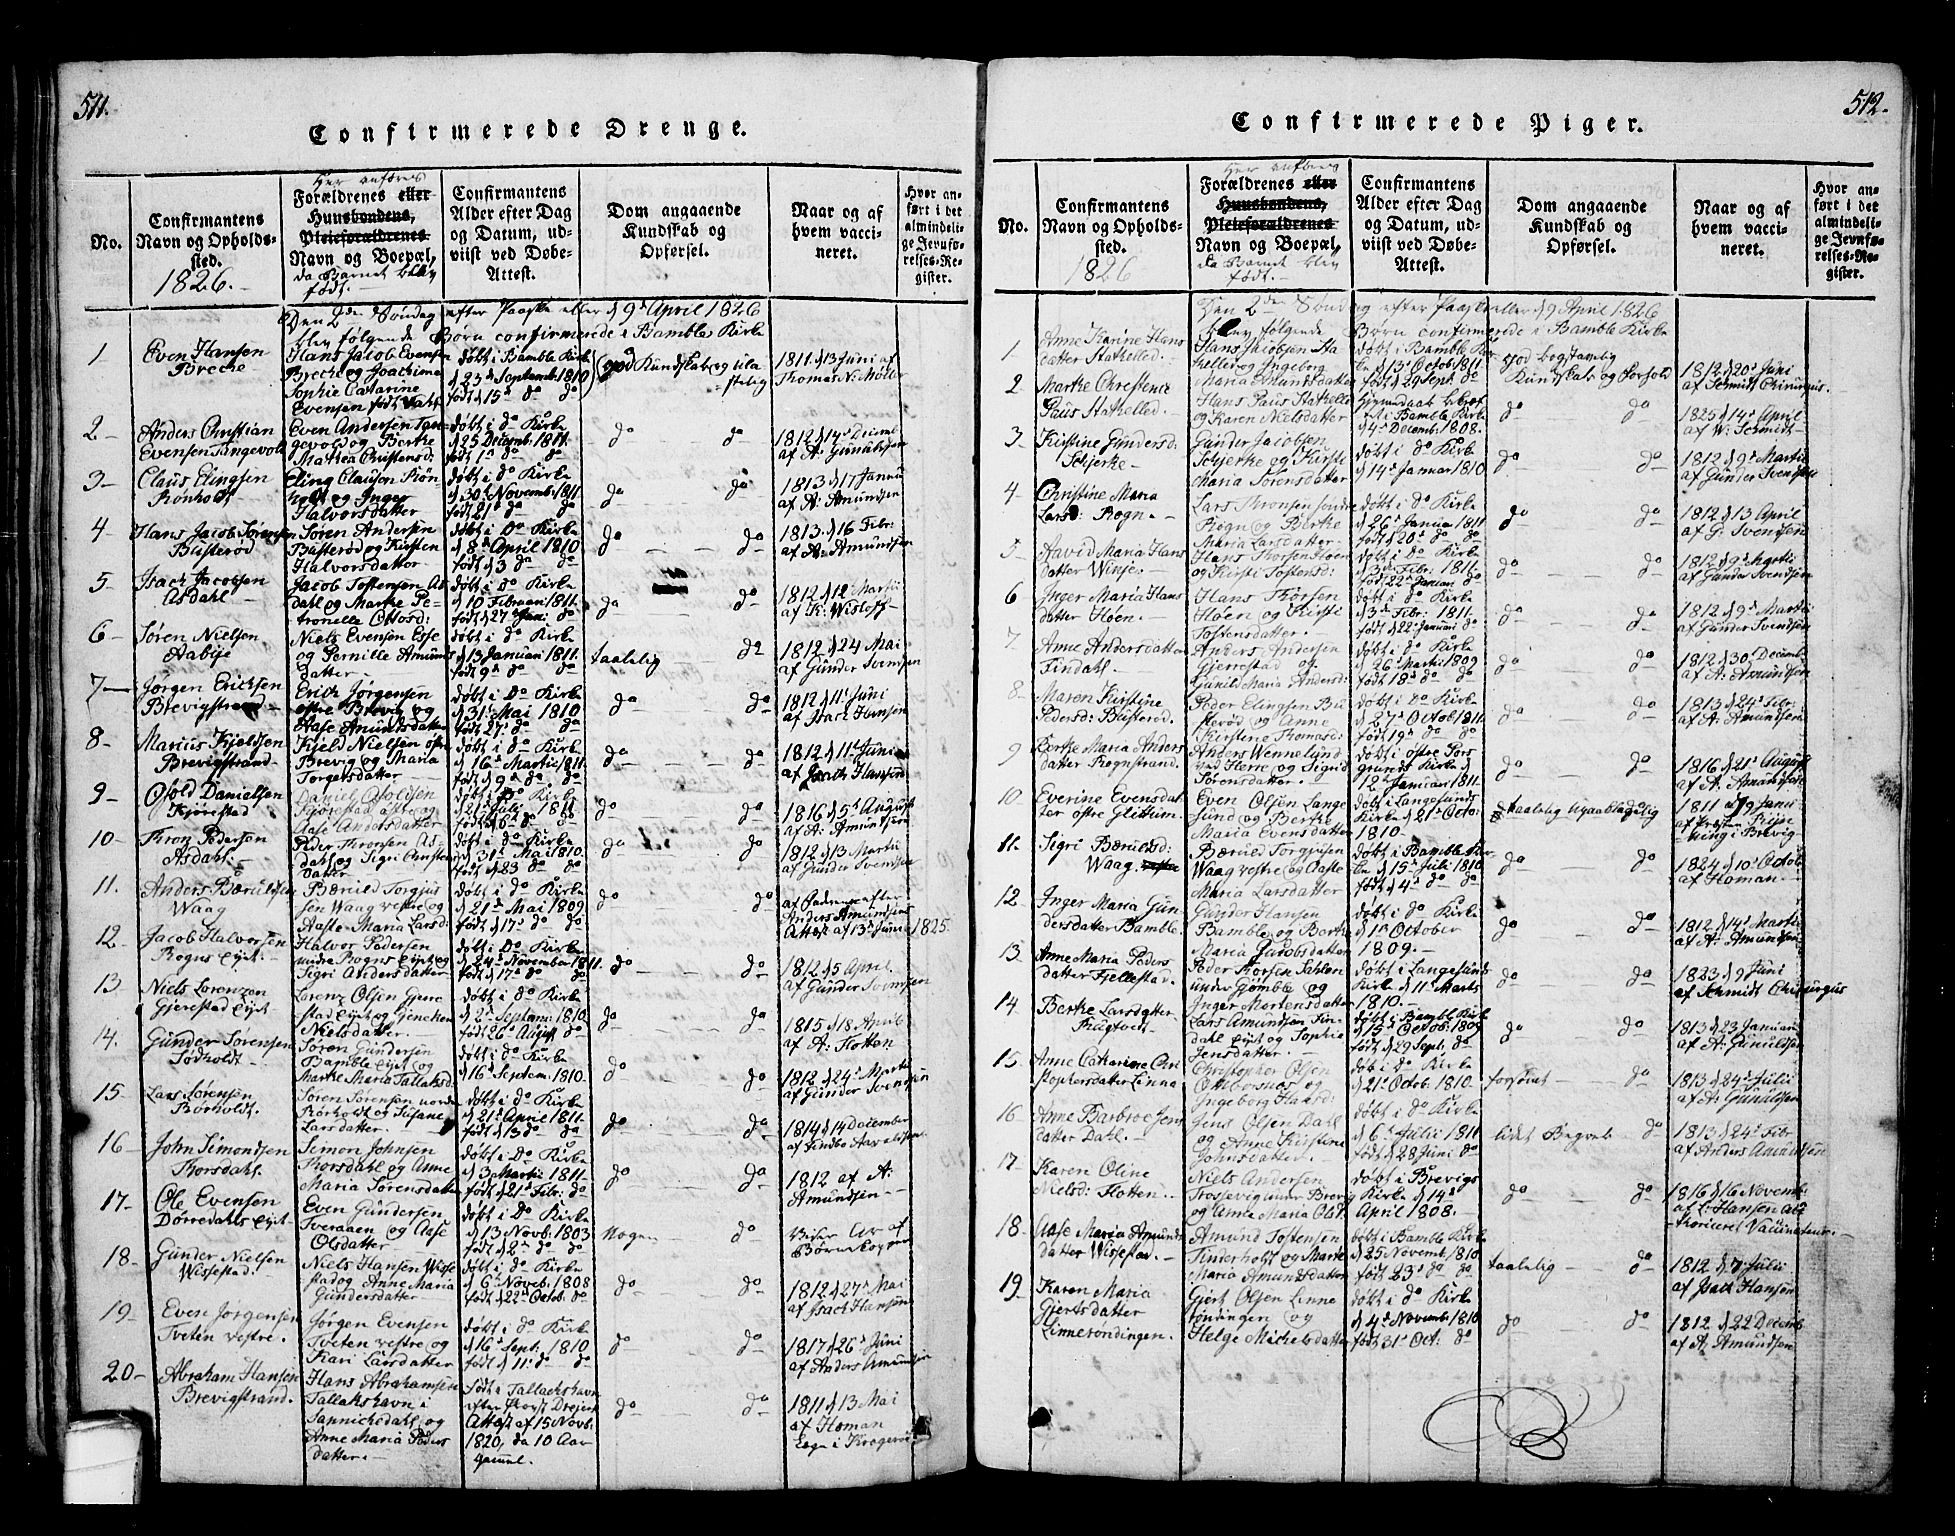 511.
Confirmerede Drenge.
No.
Confirmantens
Navn og Opholds-
sted.
1826.
Her anføres
Forældrenes eller
Huusbondens,
Pleieforældrenes
Navn og Boepæl,
da Barnet blev
født.
Confirmantens
Alder efter Dag
og Datum, ud-
viist ved Døbe-
Attest.
Dom angaaende
Kundskab og
Opførsel.
Naar og af
hvem vacci-
neret.
Hvor an-
ført i det
almindeli-
ge Jevnfø-
relses-Re-
gister.
Den 2den Søndag efter Paaske eller d 9d April 1826
blev følgende Børn confirmerede i Bamble Kirke
1
Even Hansen
Brecke
Hans Jacob Evensen
Brecke og Joachime
Sophie Catarine
Evensen født Dahl
døbt i Bamble Kirke
d 23d Septemb: 1810
født d 15d do do
god Kundskab og
1811 d 13 Juni af
Thomas N. Møller
2 -
Anders Christian
Evensen Tangevold
Even Andersen Tan-
gevold og Berthe
Mathea Christensd:
døbt i do Kirke
d 25 Decemb: 1811.
født 1d do do
do do
1812 d 14d Decemb
af A: Gunuldsen
3 -
Claus Elingsen
Rønholt
Eling Clausen Røn-
holt og Inger
Halvorsdatter
døbt i do Kirke
d 30d Novemb: 1811
født 21d do do
do do
1813 d 17 Janu
af A: Amundsen
4 -
Hans Jacob Sørensen
Busterød
Søren Andersen
Busterød og Kirsten
Halvorsdatter
døbt i do Kirke
d 8d April 1810
født d 3d do do
do do
1813 d 16 Febr:
af A: Amundsen
5 -
Isach Jacobsen
Asdahl
Jacob Tostensen As-
dahl og Marthe Pe-
tronelle Ottosd:
døbt i do Kirke
d 10 Februari 1811.
født d 27d Jani do
do do
1812 d 12 Martii
af K: Wisløff
6 -
Søren Nielsen
Aabye
Niels Evensen Esse
og Pernille Amunds
datter
døbt i do Kirke
d 13 Januari 1811.
født 9d do do
taalelig do
1812 d 24 Mai
af Gunder Svensen
7 -
Jørgen Erichsen
Brevigstrand
Erich Jørgensen
østre Brevig og
Aase Amundsdatter
døbt i do Kirke
d 31d Mai 1810
født 27d do do
do do
1812 d 11d Juni
af Isach Hansen
8 -
Marius Kjeldsen
Brevigstrand
Kjeld Nielsen østr
Brevig og Maria
Torgersdatter
døbt i do Kirke
d 16d Martii 1811
født d 9d do do
do do
1812 d 11d Junia
af Isach Hansen
9 -
Ofold Danielsen
Kjørestad
Daniel Ofoldsen
Kjørestad østre og
Aase Andersdatter
døbt i do Kirke
d 21d Julii 1811
født d 16d do do
do do
1816 d 5d August
af A: Amundsen
10 -
Thron Pedersen
Asdahl.
Peder Thronsen As-
dahl og Sigri Christens
datter
døbt i do Kirke
d 31d Mai 1810.
født d 23 do do
do do
1812 d 13 Martii
af Gunder Svensen
11.
Anders Bærulsen
Waag
Bæruld Torgjus
sen Waag vestre og
Aaste Maria Larsd:
døbt i do Kirke
d 21d Mai 1809
født d 17d do do
do do
af efter
Anders Amundsens
Attest af 13d Juni 1825.
12
Jacob Halvorsen
Rogns Eyet.
Halvor Pedersen
undre Rogns Eyet og
Sigri Andersdatter
døbt i do Kirke
d 24d November 1811.
født d 17d do do
do do
1812 d 5 April
af Gunder Svensen
13
Niels Lorenzen
Gjerestad Eyet
Lorenz Olsen Gjere
stad Eyet og Gjencken
Nielsdatter
døbt i do Kirke
d 2d Septem: 1810.
født 26d August do
do do
1815 d 18 April
af A: Flotten
14.
Gunder Sørensen
Sødholdt.
Søren Gundersen
Bamble Eyet og
Marthe Maria Tallaksd:
døbt i do Kirke
d 16d Septem: 1810.
do do
1812 d 24d Martii
af Gunder Svensen
15
Lars Sørensen
Børholdt.
Søren Sørensen norden
Børholdt og Susane
Larsdatter.
døbt i do Kirke
d 21d April 1811.
født d 13 do do
do do
1814 d 14 december
af Aavaldsen
16
John Simondsen
Thorsdahl.
Simon Johnsen
Thorsdahl og Anne
Maria Sørensdatter
døbt i do Kirke
d 3 Martii 1811.
født d 21d Febr: do
do do
1812 af A:
Amundsen
17 -
Ole Evensen
Dørredahls Eyet
Even Gundersen
Tveraaen og Aase
Olsdatter
døbt i do Kirke
d 13 Novb: 1803
født d 2d do do
Nogen do
Viser Ar af
Børnekopper
18 -
Gunder Nielsen
Wissestad.
Niels Hansen Wisse
stad og Anne Maria
Gundersdatter
døbt i do Kirke
d 6d Noveb: 1808
født d 22d Octob: do
do do
1812 d 27d Mai
af Isach Hansen
19 -
Even Jørgensen
Tveten vestre.
Jørgen Evensen
Tveten vestre og
Kari Larsdatter
døbt i do Kirke
d 16d Sept: 1810
født d 11d do do
do do
1817 d 26d Juni
af Anders Amundsen
20 -
Abraham Hansen
Brevigstrand.
Hans Abrahamsen
Tallakshavn i
Sannichedahl og
Anne Maria Peders
datter.
Født i Tallachshavn
efter Provst Dreyers
Attest af 15 Novb:
1820, da 10 Aar
gammel.
do do
1811 d 13 Mai
af Homan
Læge i Kragerøe
512.
Confirmerede Piger.
No.
Confirmantens
Navn og Opholds-
sted.
1826
Her anføres
Forældrenes eller
Huusbondens,
Pleieforældrenes
Navn og Boepæl,
da Barnet blev
født.
Confirmantens
Alder efter Dag
og Datum, ud-
viist ved Døbe-
Attest.
Dom angaaende
Kundskab og
Opførsel.
Naar og af
hvem vacci-
neret.
Hvor an-
ført i det
almindeli-
ge Jevnfø-
relses-Re-
gister.
Den 2den Søndag efter Paaske eller d 9 April 1826
blev følgende Børn confirmerede i Bamble Kirke
1 -
Anne Karine Hans
datter Stathelled.
Hans Jacobsen Sta
thelle og Ingeborg
Maria Amundsdatter
døbt i Bamble Kir
ke d 13d Octob: 1811
født d 29 Sept: do
god bogstavelig
Kundskab og Forhold
1812 d 20d Juni
af Schmidt Chirurgus.
2
Marthe Christence
Paus Stathelled.
Hans Paus Stathelle
og Karen Nielsdatter
døbt i Bamble Kirke
d 4d Decemb: 1808.
do do
1825 d 14d April
af W: Schmidt
3 -
Kistine Gundersd:
Schjerke
Gunder Jacobsen
Schjerke og Kirsti
Maria Sørensdatter
døbt i do Kirke
d 14d Januar 1810
do do
1812 d 9d Martii
af Gunder Svensen
4 -
Christine Maria
Larsd: Rogn.
Lars Thronsen søndre
Rogn og Birthe
Maria Larsdatter
døbt i do Kirke
d 26d Januar 1811
født d 20d do do
do do
1812 d 13 April
af G. Svensen
5 -
Aavid Maria Hans
datter Winje.
Hans Thorsen Høen
og Kirsti Tostensd:
døbt i do Kirke
d 3d Febr: 1811.
født 22d Januari do
do do
1812 d 9d Martii
af Gunder Svendsen
6
Inger Maria Hans
datter Høen.
Hans Thorsen
Høen og Kirsti
Tostensdatter.
døbt i do Kirke
d 3d Febr: 1811.
født d 22d Januari do
do do
1812 d 9d Martii
af Gunder Svendsen
7 -
Anne Andersdatter
Findahl.
Anders Andersen
Gjerrestad og
Gunild Maria Andersd:
døbt i do Kirke
d 26 Martii 1809
født 18d do do
do do
1812 d 30 Decemb
af A: Amundsen
8 -
Maren Kistine
Pedersd: Busterød.
Peder Elingsen Bu
sterød og Anne
Kirstine Thomasd:
døbt i do Kirke
d 27d Octob 1811
født 19d do do
do do
1813 d 24d Febr:
af A: Amundsen
9
Berthe Maria Anders
datter Rognstrand.
Anders Wennelund
ved Herre og Sigrid
Sørensdatter
døbt i østre Pors
grunds Kirke d
12d Januari 1811.
do do
1816 d 21d August
af A: Amundsen
10 -
Everine Evensdat
ter østre Glittum.
Even Olsen Lange
sund og Berthe
Maria Evensdatter
døbt i Langesunds
Kirke d 21d Octo:
1810.
taalelig Upaaklagelig
1811 d 19 Junii
af Presten Krise
ning i Brevig
11 -
Sigri Bærulds:
Waag.
Bæruld Torgjusen
Waag vestre og Aaste
Maria Larsdatter
døbt i Bamble Kir
ke d 15d Juli 1810
født d 4d do do
do do
1824 d 10d Octob
af Homan.
12.
Inger Maria Gun
dersdatter Bamble.
Gunder Hansen
Bamble og Bertha
Maria Jacobsdatter
døbt i do Kirke
d 1d October
1809.
do do
1812 d 14d Martii
af A: Amundsen
13.
Anne Maria Peders
datter Fjellestad.
Peder Thorsen Sahlen
under Gomble og
Inger Mortensdatter
døbt i Langesunds
Kirke d 11d Marts
1810.
do do
1823 d 9 Juni
af Schmidt Chirurgus
14
Berthe Larsdatter
Rugtvedt.
Lars Amundsen Fin
dahl Eyet og Sophia
Jensdatter.
døbt i Bamble Kirke
d 15d Octob: 1809
født d 29 Sept: do
do do
1813 d 23 Januari
af A: Gunuldsen
15 -
Anne Catharine Chri
stophersdatter Linna
Christopher Olsen
Ombersnæs og
Ingeborg Hansd:
døbt i do Kirke
d 21d Octob: 1810.
forsømt do
1813 d 24d Julii
af A: Gunuldsen
16 -
Anne Barbroe Jens
datter Dahl.
Jens Olsen Dahl
og Anne Kistine
Johnsdatter.
døbt i do Kirke
d 6d Julii 1811
født d 28 Juni do
lidet Begreb do
1813 d 24d Febr
af Anders Amundsen
17 -
Karen Oline
Nielsd: Flotten.
Niels Andersen
Trosvig under Brevig
og Anne Maria Olsd.
døbt i Brevigs
Kirke d 14d
April 1808.
do do
1816 d 16 Novemb
af L: Hansen au-
thoriseret Vaccinateur.
18 -
Aase Maria Amunds
datter Wissestad.
Amund Tostensen
Tinderholt og Marte
Maria Amundsdatter
døbt i Bamble Kirke
d 25 Novemb: 1810
født 23d do do
taalelig do
1812 d 7d Julii
af Isach Hansen
19 -
Karen Maria
Gjertsdatter
Linnerønningen.
Gjert Olsen Linne
rønningen og
Helge Michelsdatter
døbt i do Kirke
d 4d Novemb: 1810
født 31d Oct: do
do do
1812 d 22 Decemb
af A: Amundsen